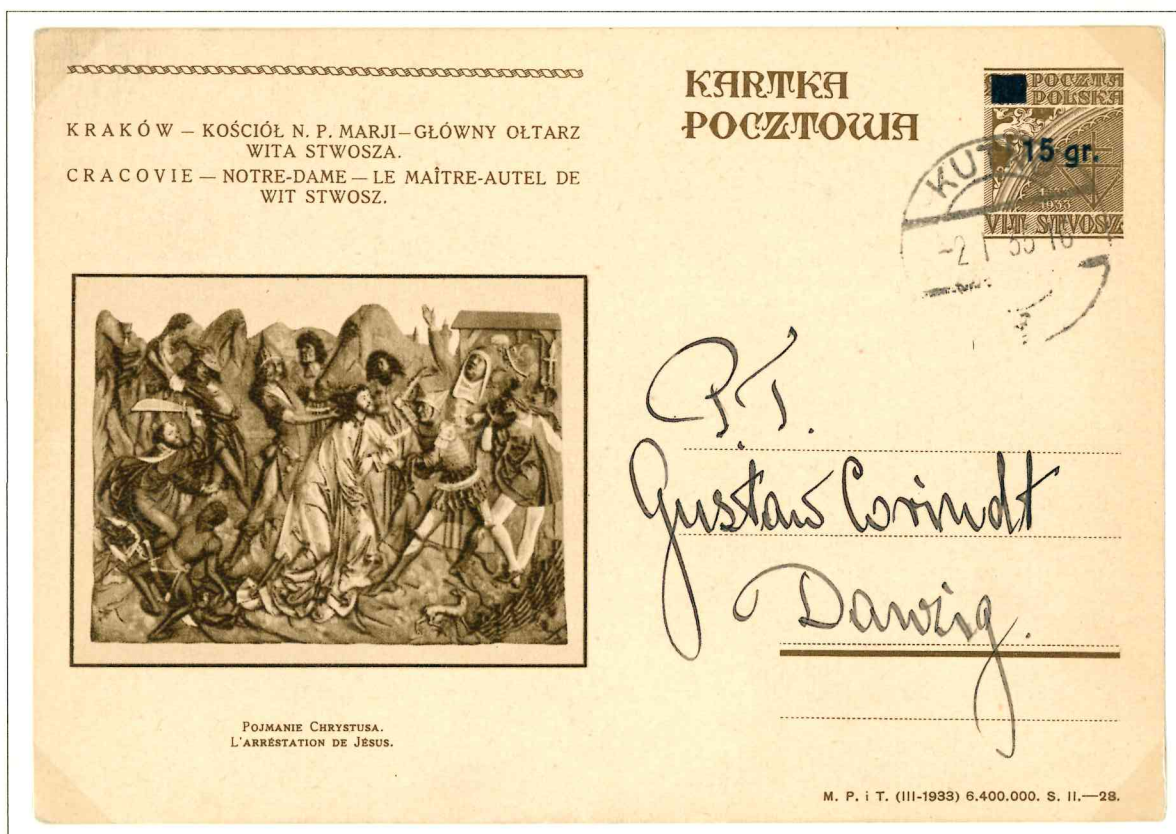 KRAKÓW — KOŚCIÓŁ N. P. MARJI — GŁÓWNY OŁTARZ
WITA STWOSZA.
CRACOVIE — NOTRE-DAME — LE MAÎTRE-AUTEL DE
WIT STWOSZ.
POJMANIE CHRYSTUSA.
L'ARRÉSTATION DE JÉSUS.
KARTKA
POCZTOWA
POCZTA
POLSKA
15 gr.
1933
VIT. STVOSZ
KUT
-2 I 35
P.T.
Gustaw Corindt
Danzig.
M. P. i T. (III-1933) 6.400.000. S. II.—28.